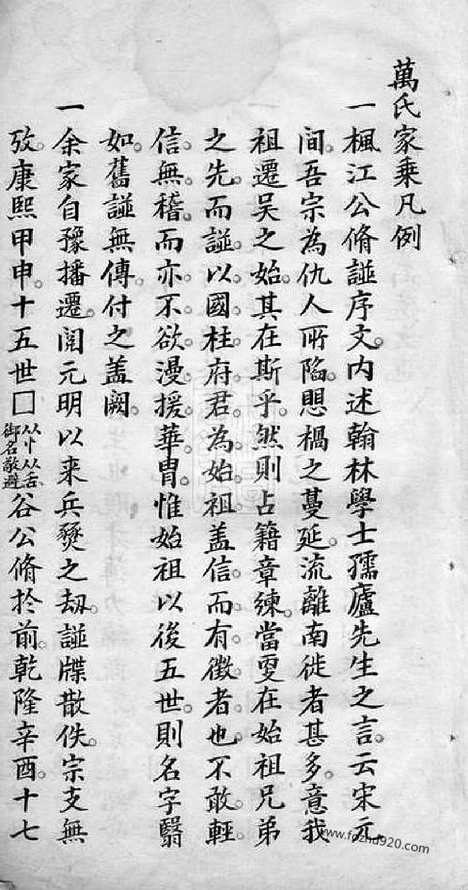 萬氏家乘凡例
一楓江公脩諩序文。内述翰林學士孺廬先生之言。云宋元
間。吾宗為仇人所陷。思禍之蔓延。流離南徙者甚多。意我
祖遷吳之始。其在斯乎。然則占籍章練。當更在始祖兄弟
之先。而諩以國柱府君。為始祖。盖信而有徵者也。不敢輕
信無稽。而亦不欲漫援華胄。惟始祖以後五世。則名字翳
如。舊諩無傳。付之盖闕。
一余家自豫播遷。閲元明以來兵燹之刼。諩牒散佚。宗支無
攷。康熙甲申。十五世□從忄從舌御名敬避谷公脩於前。乾隆辛酉。十七
www.fozhu920.com